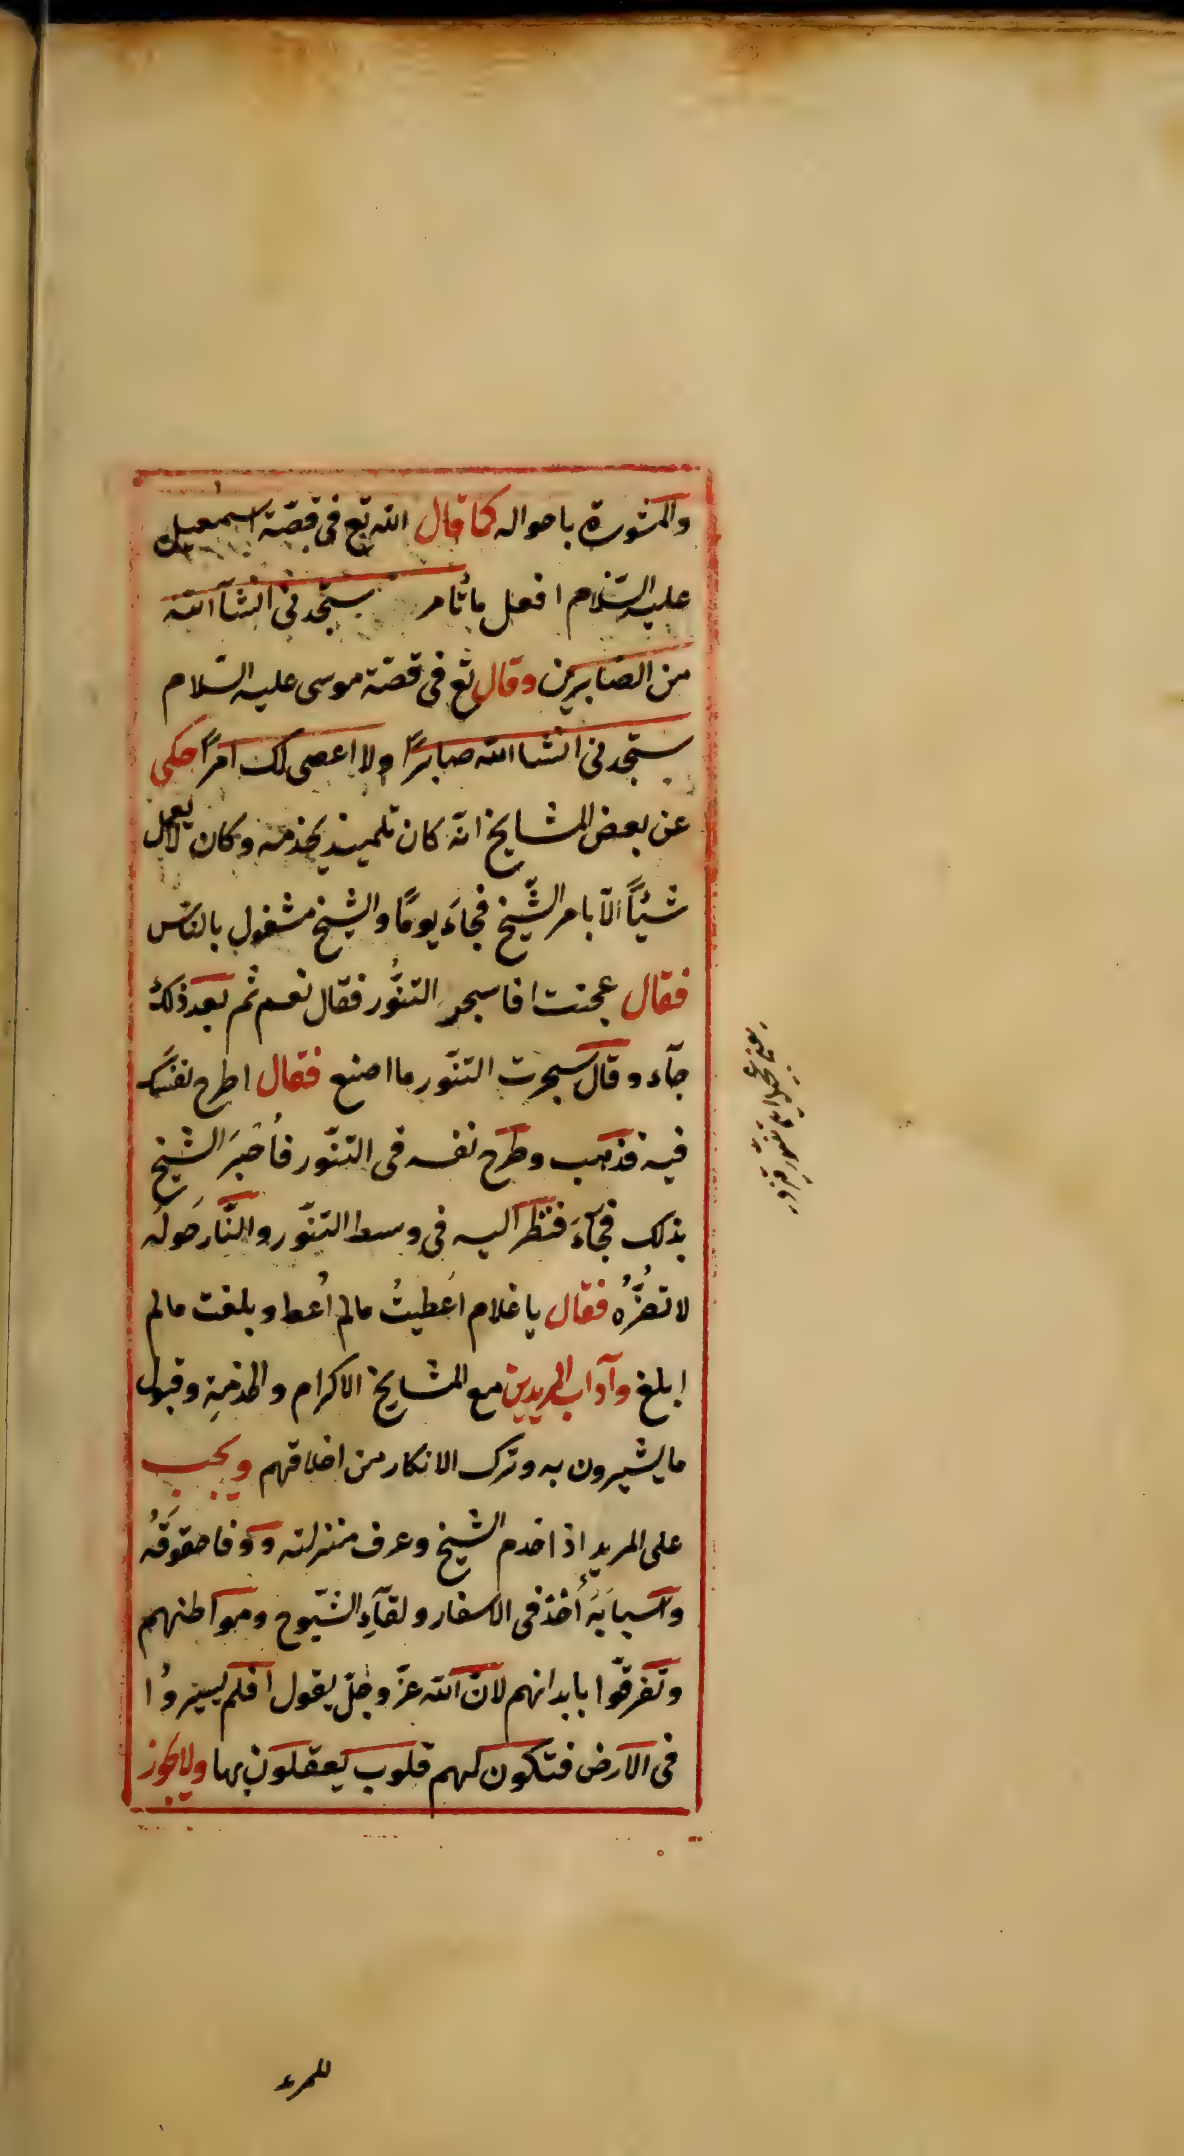 والمشورة باحواله كما قال الله تع فى قصّة اسمعيل
عليه السّلام افعل ما تأمر ستجدنى انشآالله
من الصّابرين وقال تع فى قصّة موسى عليه السّلام
ستجدنى انشاالله صابراً ولا اعصى لك امراً حكى
عن بعض المشايخ انّه كان تلميذ يخدمه وكان لا يعمل
شيئاً الّا بامر الشّيخ فجاءَ يومًا والشيخ مشغول بالنّاس
فقال عجنت افاسجر التنّور فقال نعم ثم بعد ذلك
جآء وقال سجرت التنّور ما اصنع فقال اطرح نفسك
فيه فذهب وطرح نفسه فى التنّور فاُخبرَ الشيخ
بذلك فجآءَ فنظر اليه فى وسط التنّور والنّار حَولَه
لا تضُرُّه فقال يا غلام اُعطيتُ مالم اُعط وبلغت مالم
ابلغ وآداب المريدين مع المشايخ الاكرام والخدمةِ وقبول
ما يشيرون به وترك الانكار من اخلاقهم ويجب
على المريد اذا خدم الشيخ وعرف منزلته ووفا حقوقَهُ
واسبابَهُ أخذ فى الاسفار ولقآءِ الشّيوح ومواطنهم
وتفرقّوا بابدانهم لانّ الله عزّ وجلّ يقول افلم يسيروُا
فى الارض فتكون لهم قلوب يعقلون بها ولا يجوز
للمرء